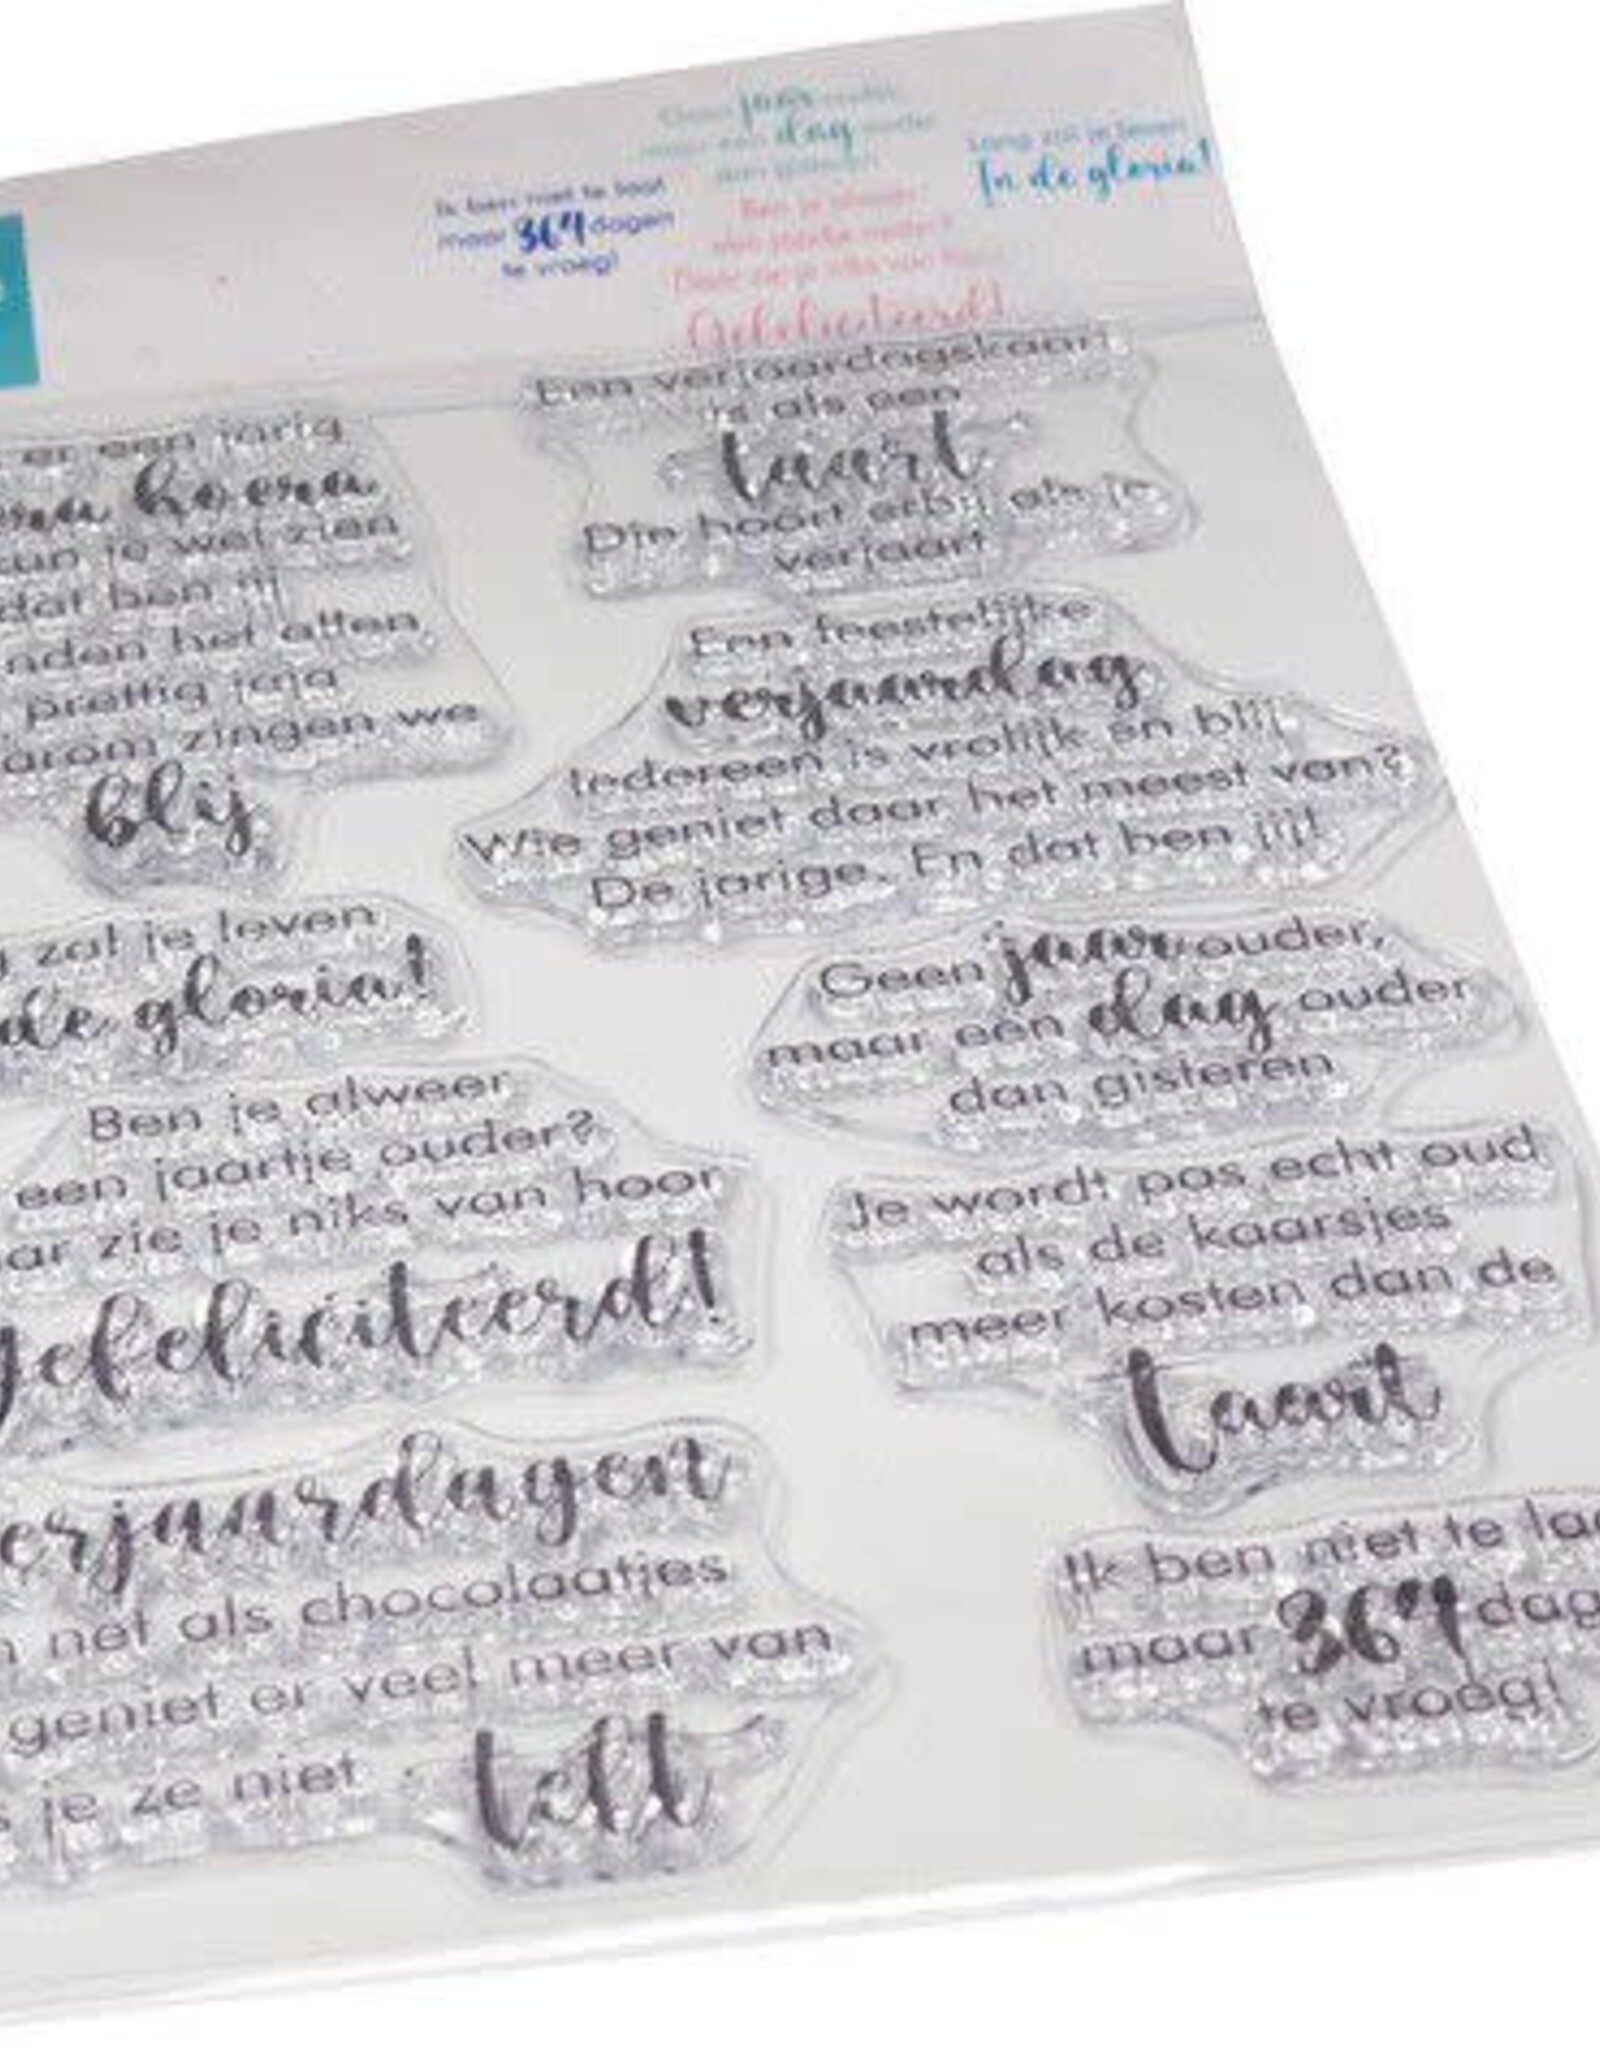 Geen jaar ouder,
maar een dag ouder
dan gisteren
Lang zal je leven
In de gloria!
Ik ben niet te laat
maar 364 dagen
te vroeg!
Ben je alweer
een jaartje ouder?
Daar zie je niks van hoor
Gefeliciteerd!
er een jarig
hoera
kun je wel zien
dat ben jij
nden het allen
prettig jaja
arom zingen we
blij
zal je leven
de gloria!
Ben je alweer
een jaartje ouder?
ar zie je niks van hoor
Gefeliciteerd!
erjaardagen
n net als chocolaatjes
geniet er veel meer van
s je ze niet telt
Een verjaardagskaart
is als een
taart
Die hoort erbij als je
verjaart
Een feestelijke
verjaardag
Iedereen is vrolijk en blij
Wie geniet daar het meest van?
De jarige. En dat ben jij!
Geen jaar ouder,
maar een dag ouder
dan gisteren
Je wordt pas echt oud
als de kaarsjes
meer kosten dan de
taart
Ik ben niet te laa
maar 364 dag
te vroeg!